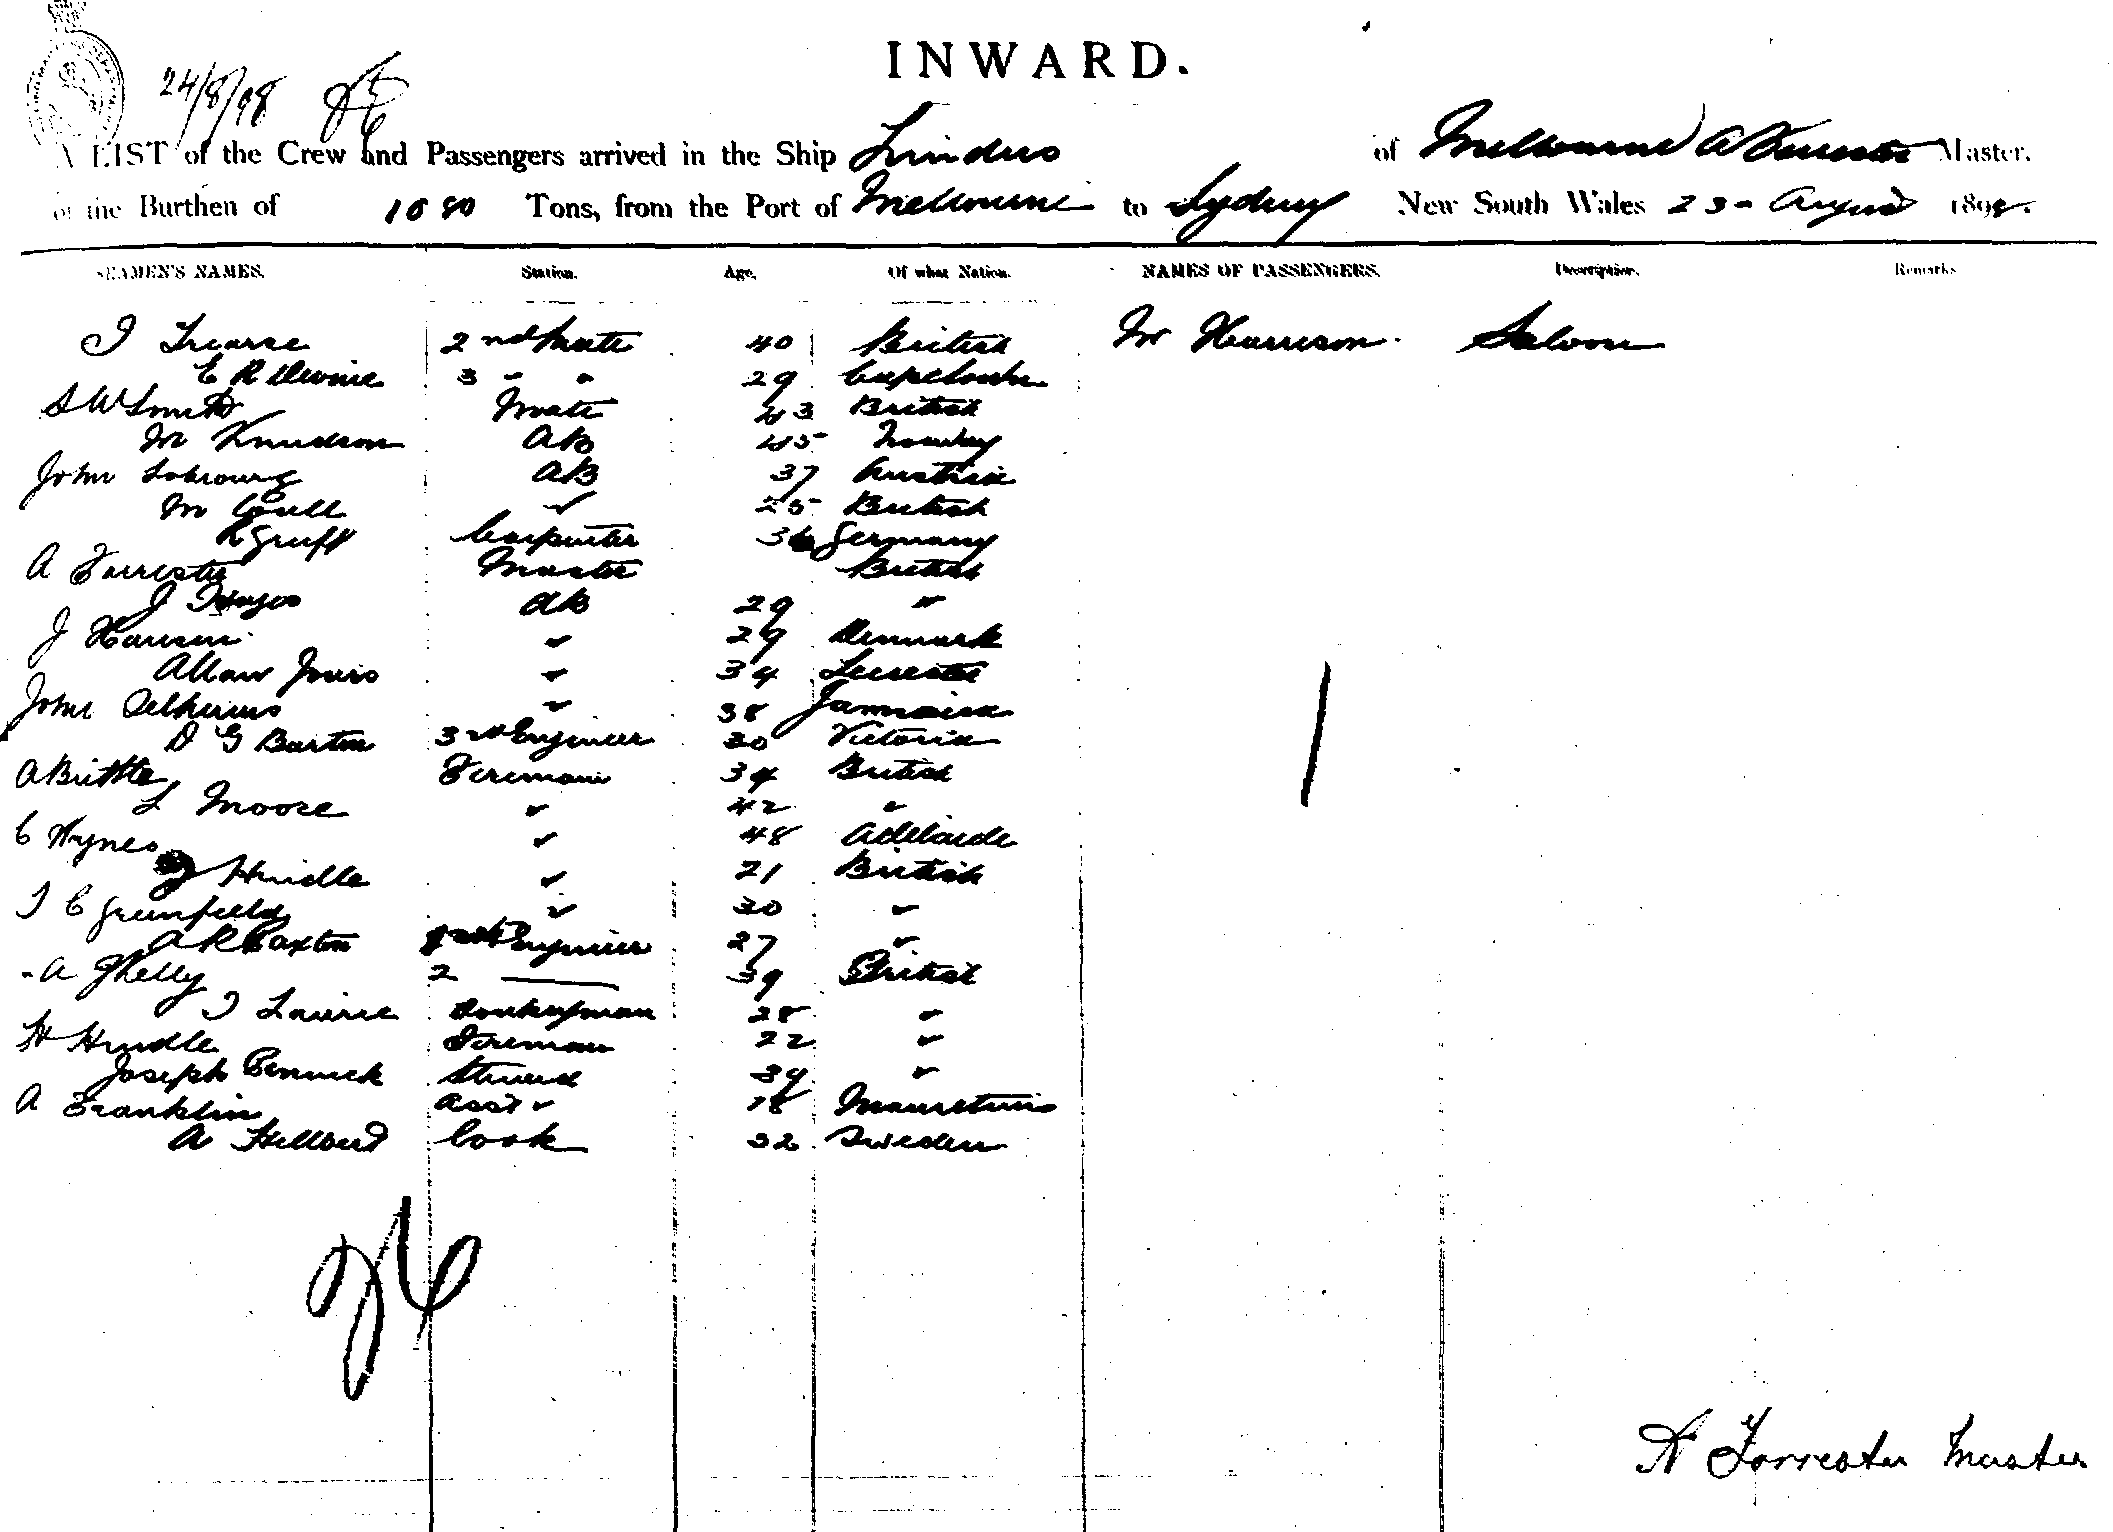 INWARD.
24/8/98
A LIST of the Crew and Passengers arrived in the Ship of Melbourne A Forrester Master.
of the Burthen of 1080 Tons, from the Port of Melbourne to Sydney New South Wales 23 - August 1898.
SEAMEN'S NAMES. Station. Age. Of what Nation. NAMES OF PASSENGERS. Description. Remarks
2nd Mate 40 British Mr Harrison. Saloon
E R Devine 3 " " 29 Capetown
S W Smith Mate 43 British
M Knudson AB 45 Norway
John AB 37 Austria
M " 25 British
Carpenter 36 Germany
A Forrester Master British
J AB 29 "
J Hansen " 29 Denmark
Allan " 34 Leicester
John " 38 Jamaica
D G Barton 3rd Engineer 30 Victoria
A Brittle Fireman 34 British
L Moore " 42 "
C Hynes " 48 Adelaide
J Hindle " 21 British
C Greenfield " 30 "
A R Paxton Engineer 27 "
A Kelly 2 39 British
Laurie Donkeyman 28 "
H Hindle Fireman 22 "
Joseph Steward 39 "
A Franklin Asst " 18 Mauritius
A Cook 32 Sweden
A Forrester Master